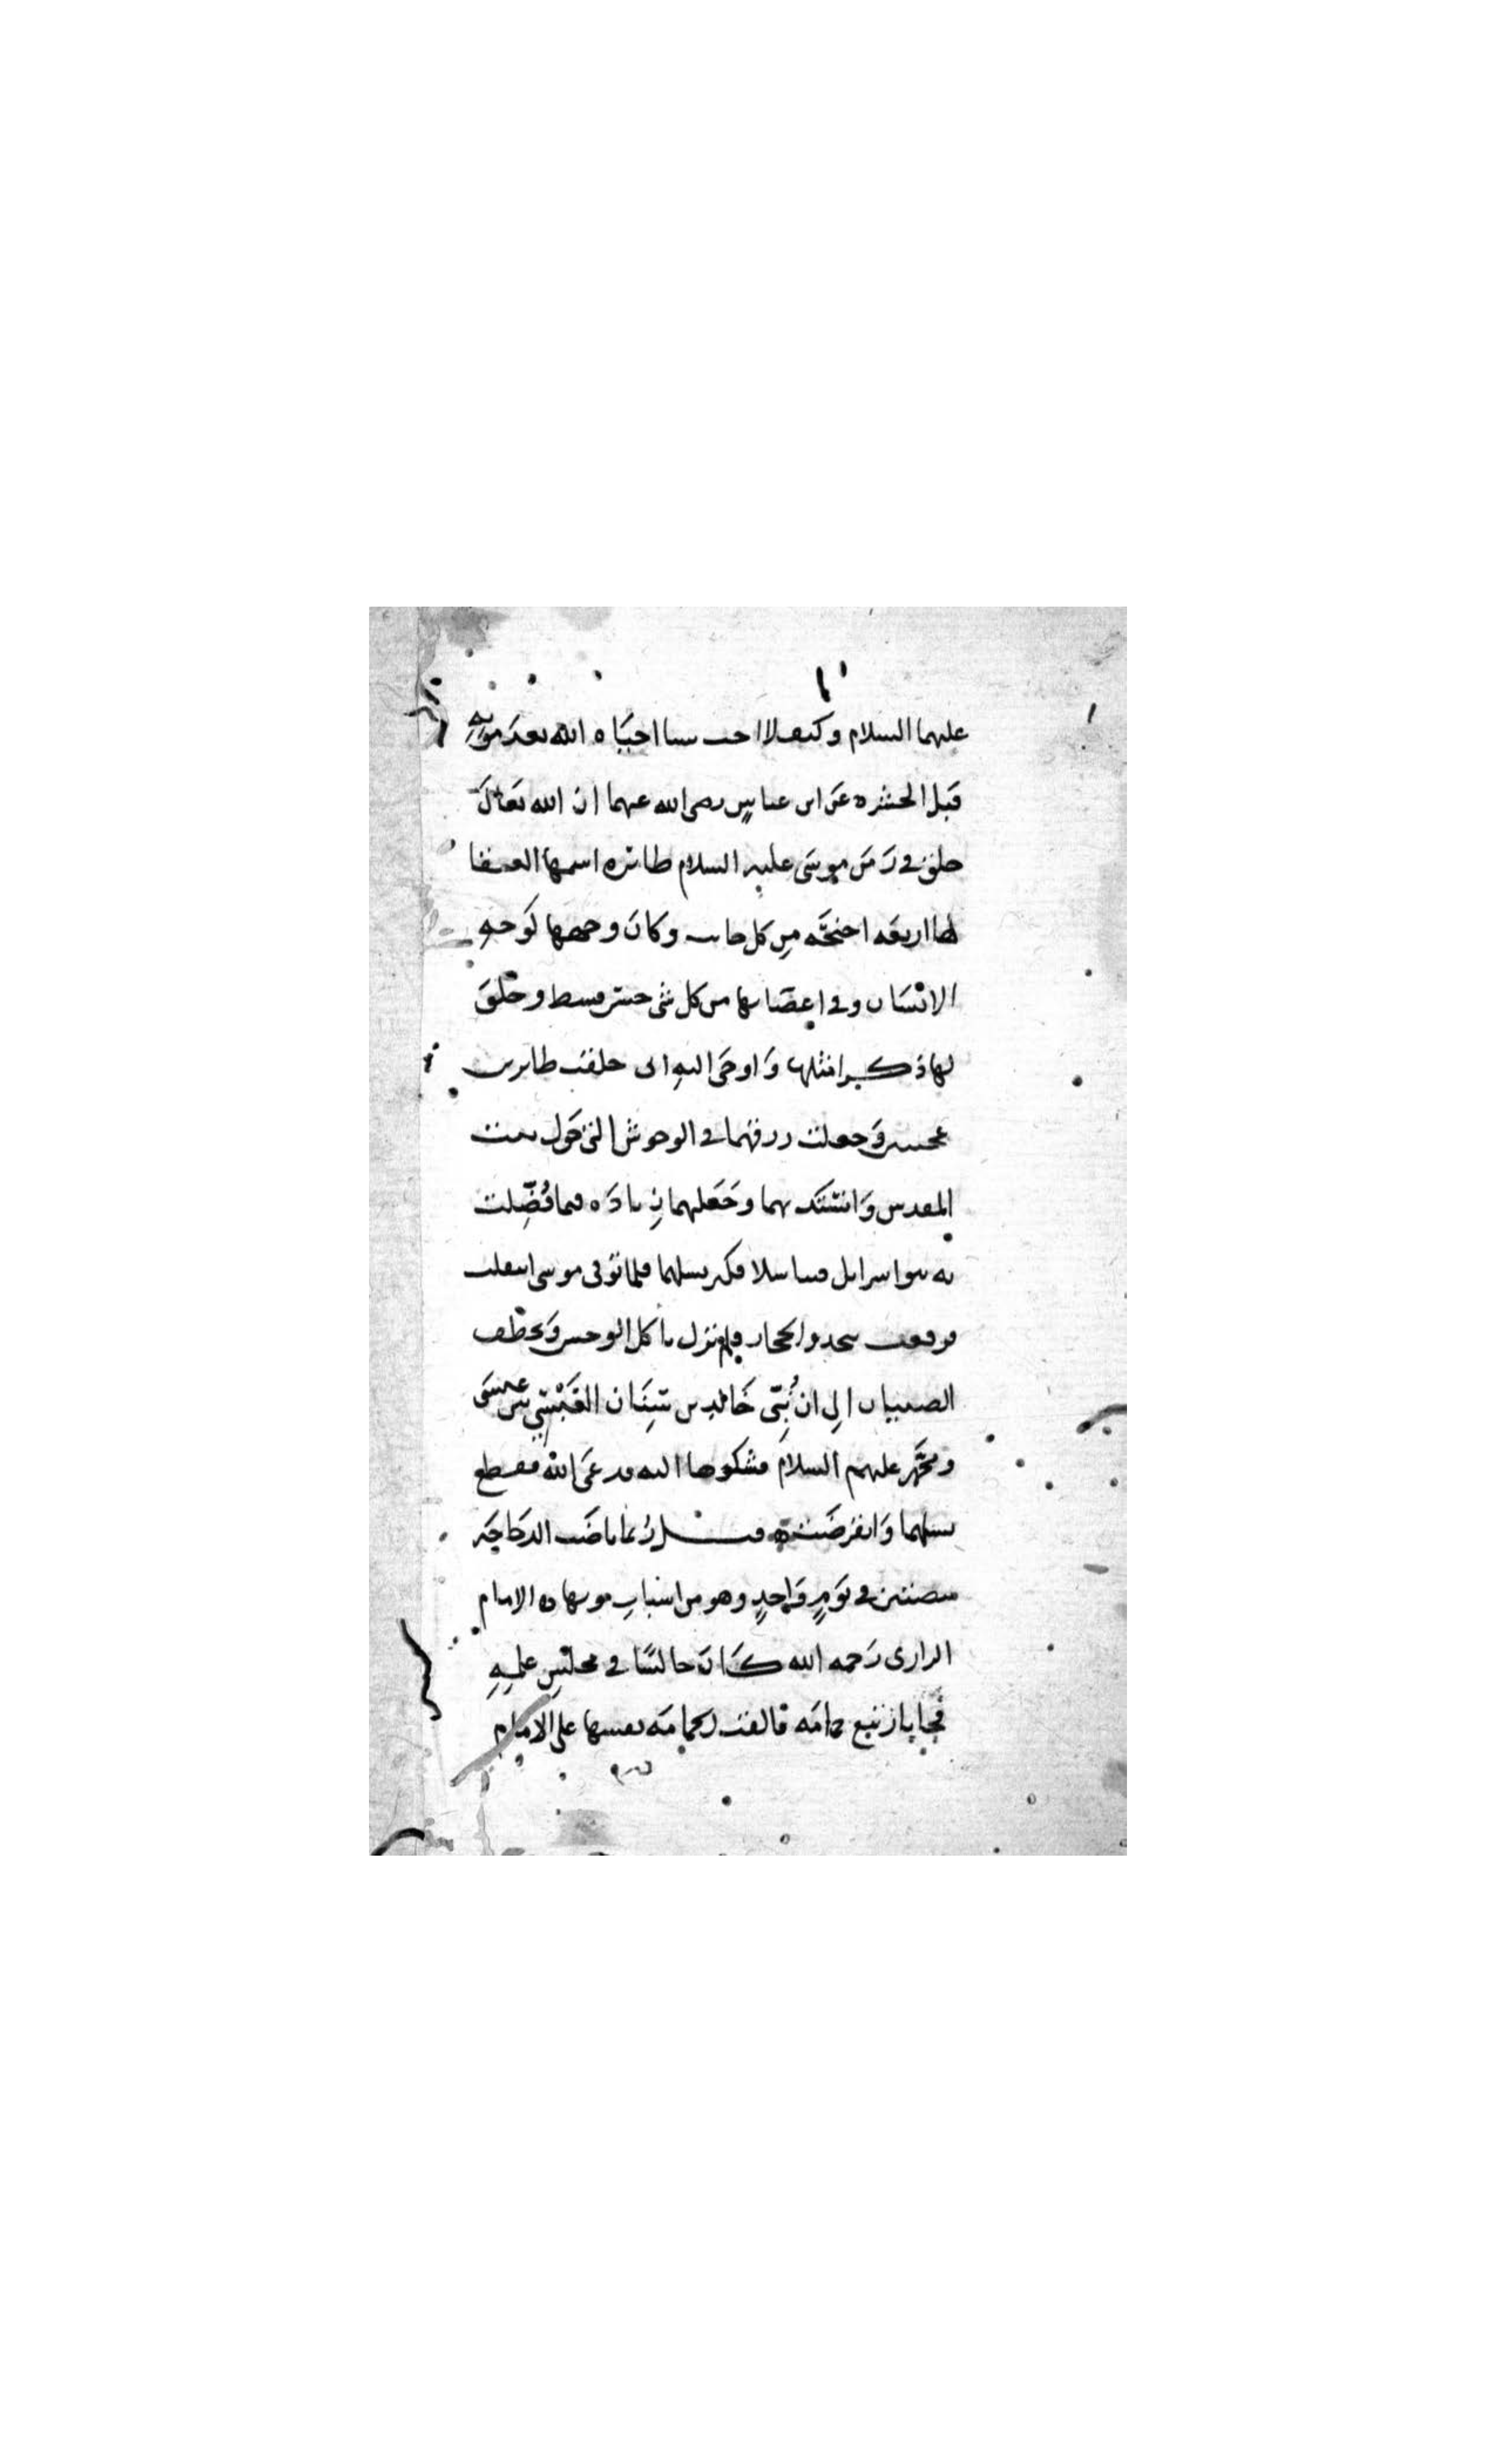 ١٠
عليهما السلام وكيف لا احب شيا احياه الله بعد موته
قبل الحشر ه عن ابن عباس رضى الله عنهما ان الله تعالى
خلق في زمن موسى عليه السلام طائره اسمها العنقا
لها اربعه اجنحه من كل جانب وكان وجهها كوجه
الانسان وفي اعضايها من كل شي حسن قسط وخلق
لها ذكرا مثلها واوحى اليه انى خلقت طائرين
عجيبين وجعلت رزقهما في الوحوش التي حول بيت
المقدس وانستك بهما وجعلهما زياده فيما فضلت
به بنو اسرايل فتناسلا فكثر نسلهما فلما توفى موسى انتقلت
فوقعت بنجد والحجاز فلم تزل تاكل الوحش وتخطف
الصبيان الى ان نبى خالد بن سنان العبسي بين عيسى
ومحمد عليهم السلام فشكوها اليه فدعى الله فقطع
نسلها وانقرضت ه قيل ربما باضت الدجاجه
بيضتين في يوم واحد وهو من اسباب موتها ه الامام
الرازى رحمه الله كان جالسا في مجلس علمه
فجا باز يتبع حمامه فالقت الحمامه نفسها على الامام